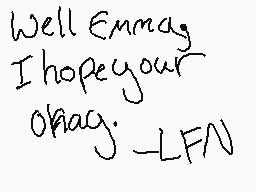 Well Emma,
I hope your
okay.
-LFN